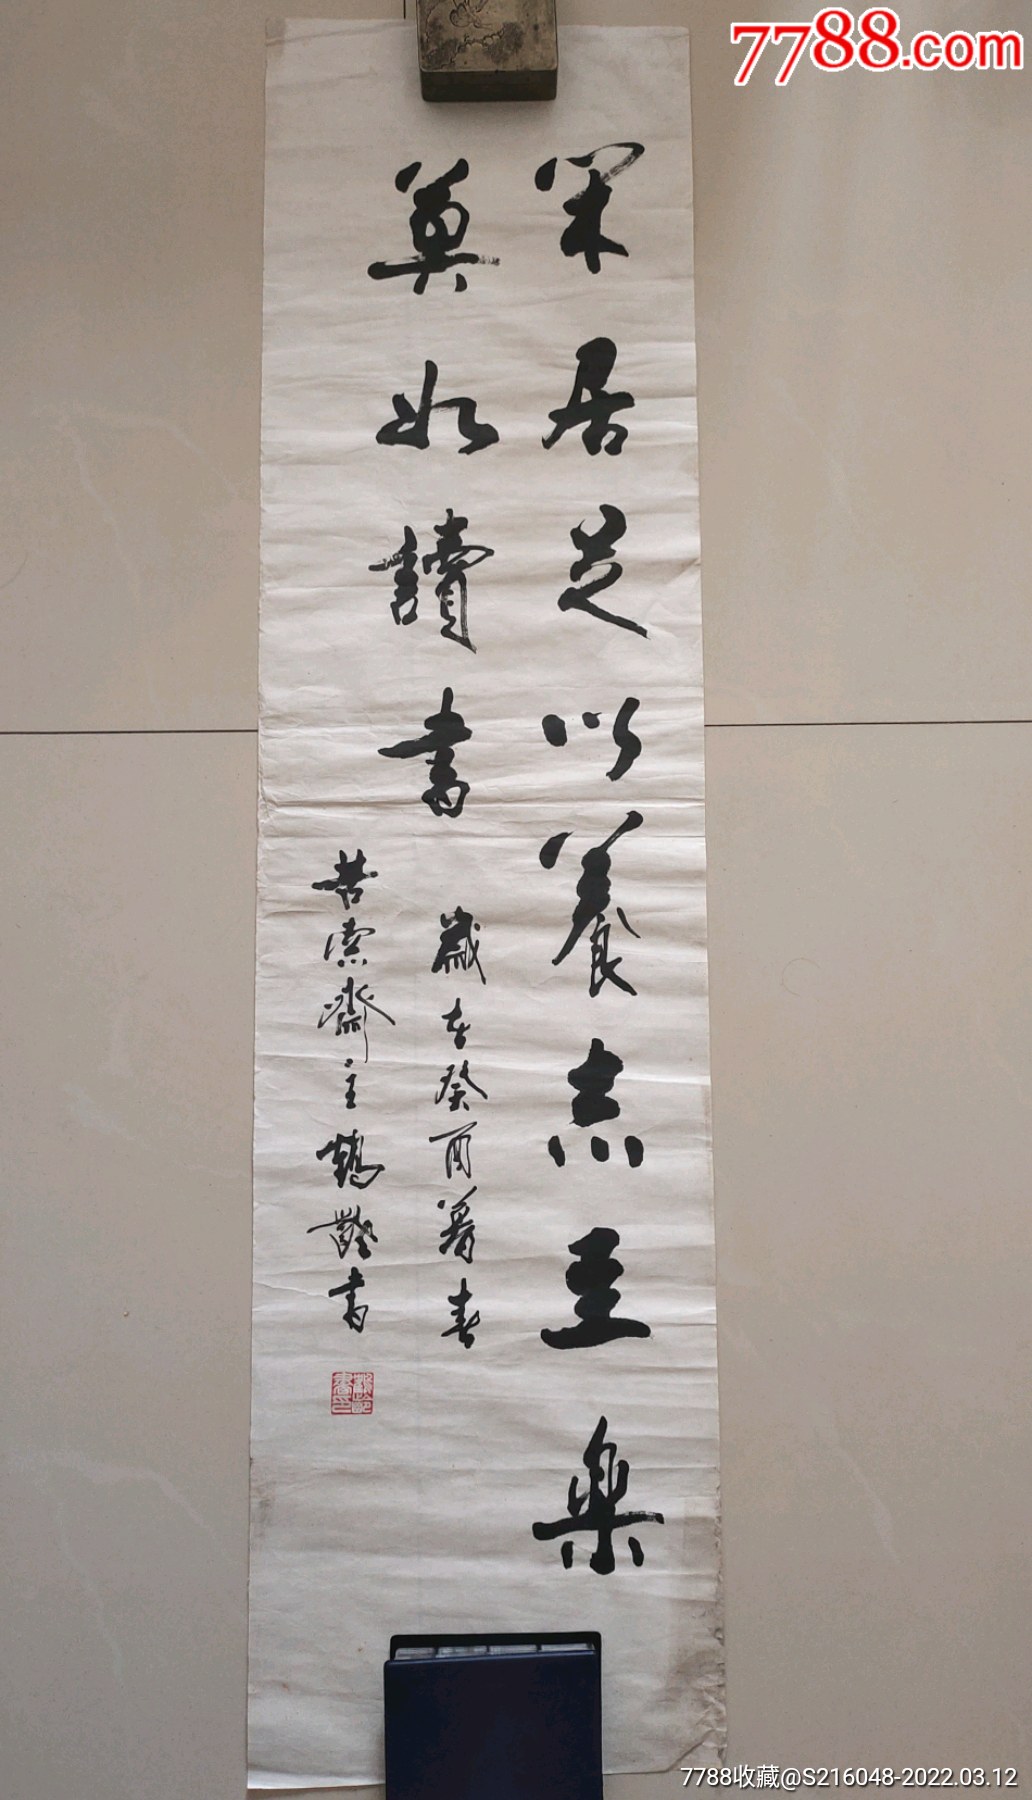 7788.com
闲居足以养志至樂
莫如讀書
歲在癸酉暮春
苦索齋主鶴齡書
7788收藏@S216048-2022.03.12